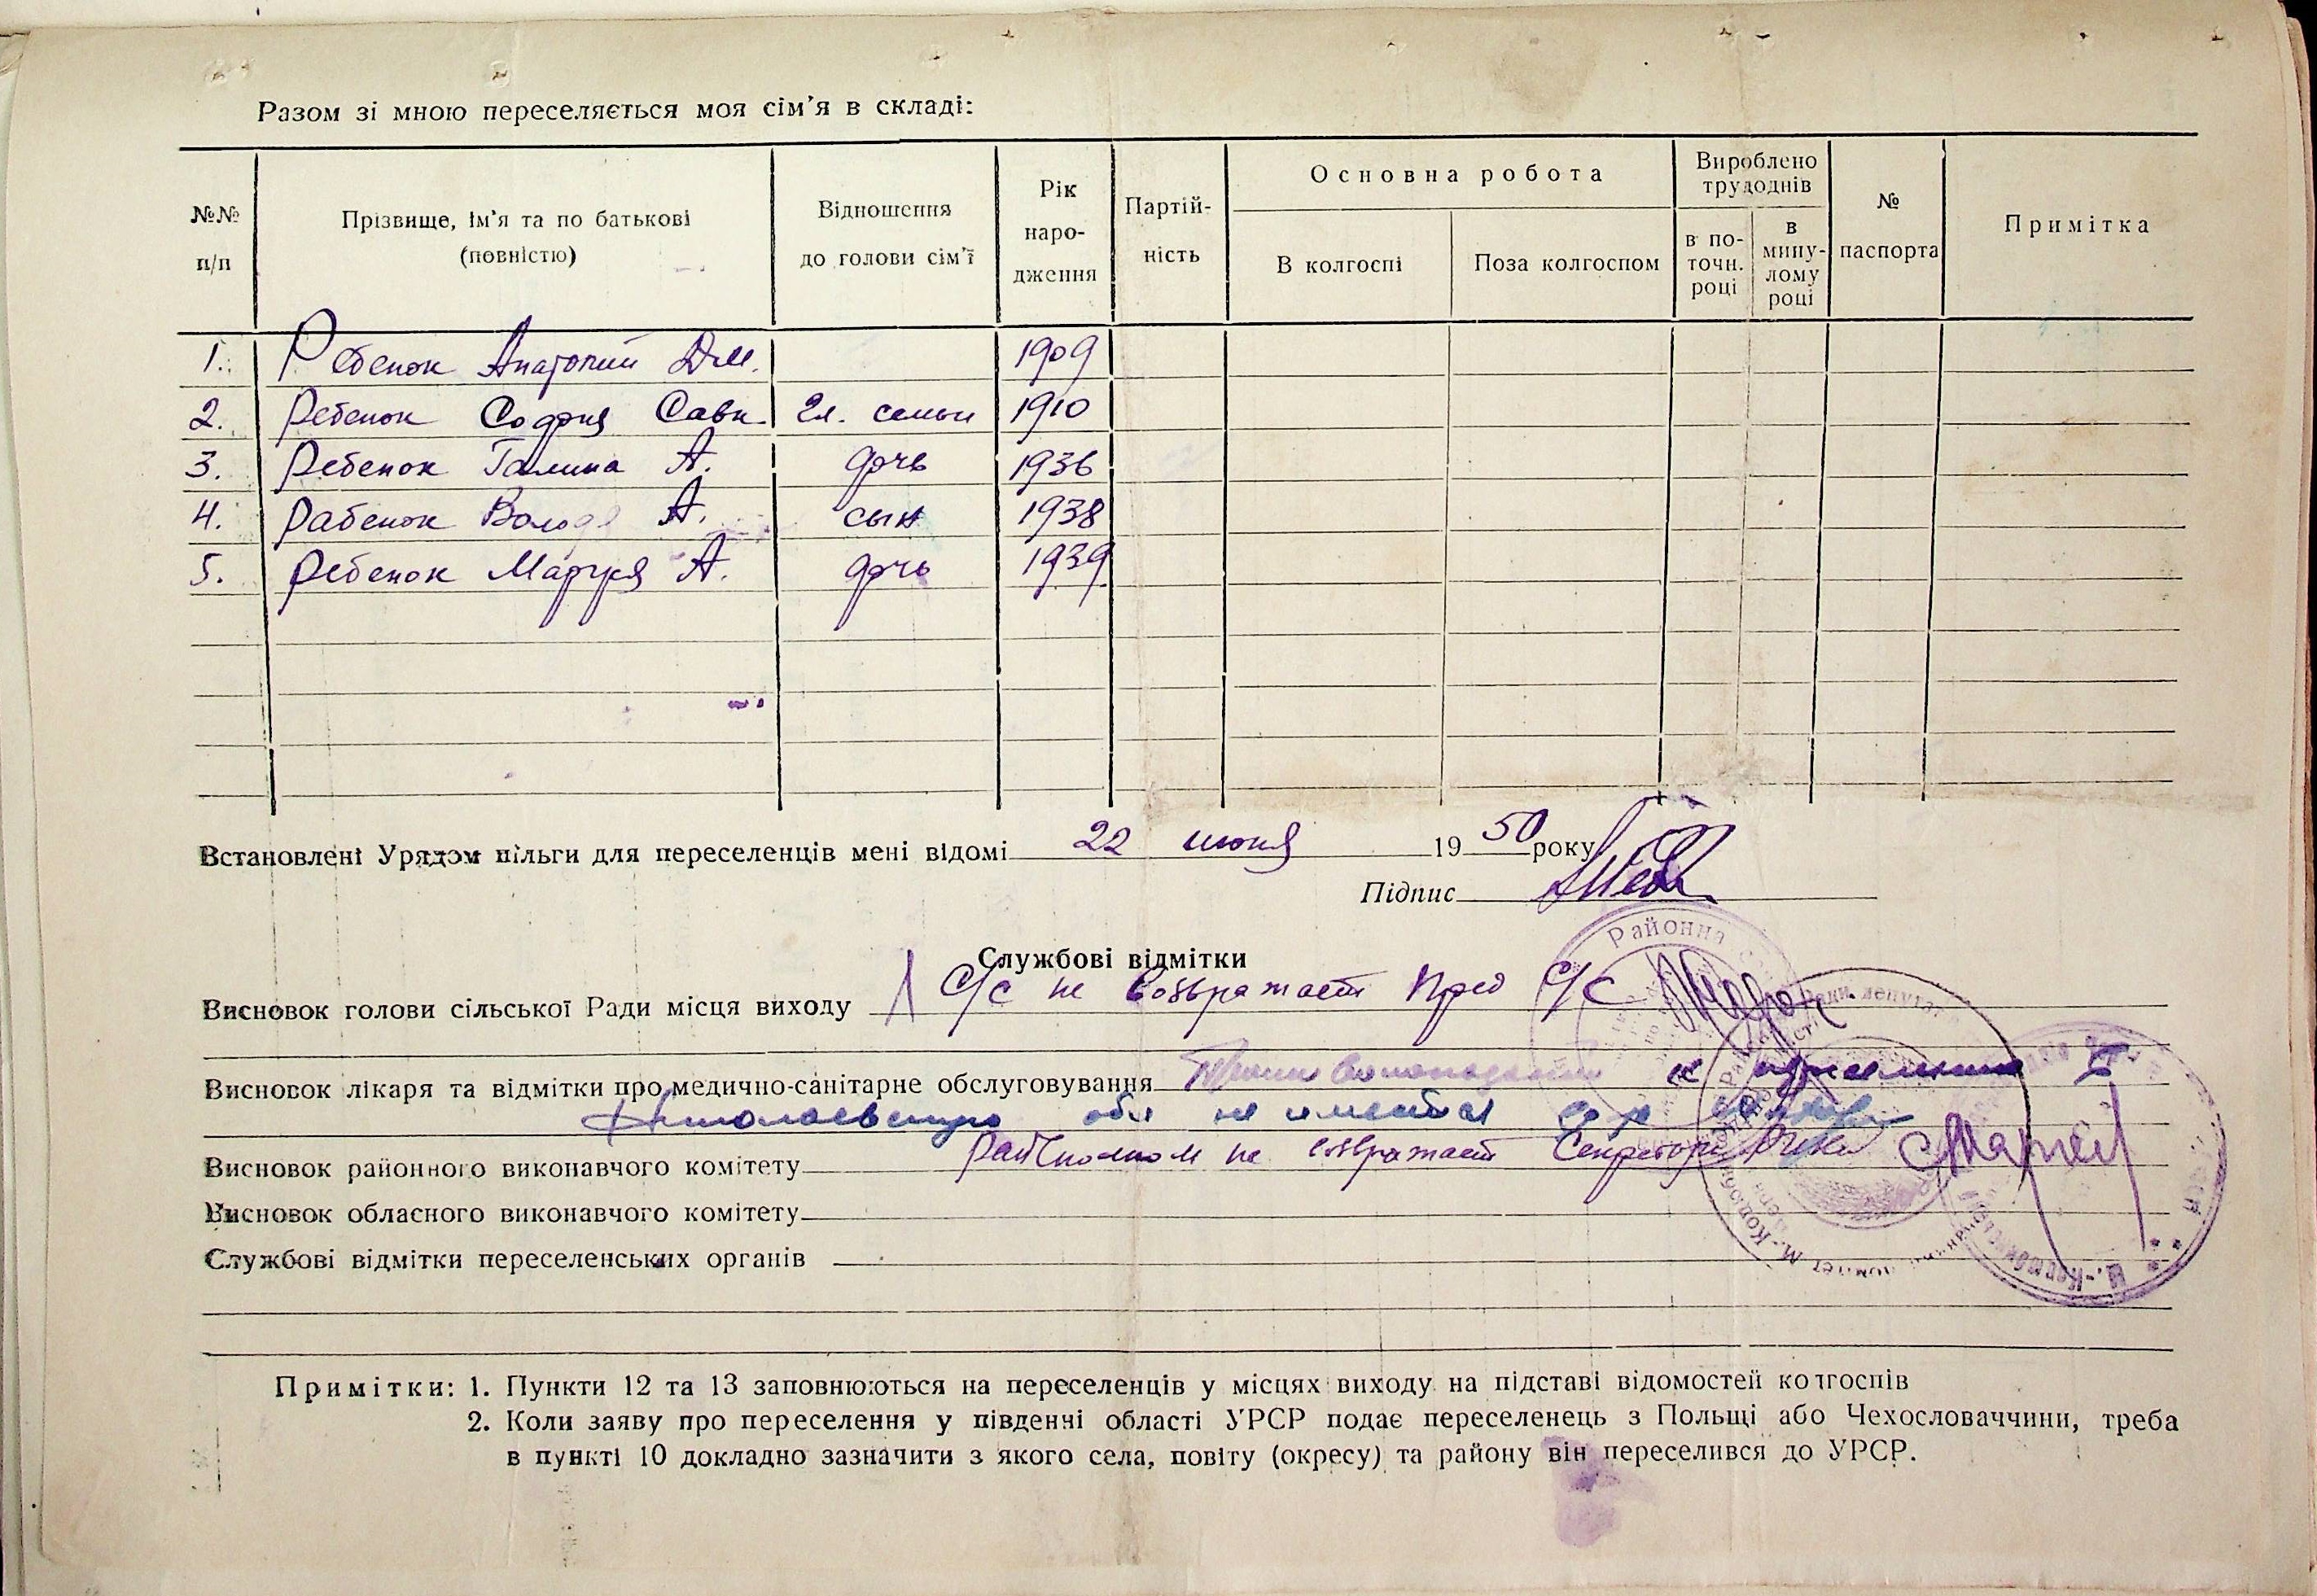 Разом зі мною переселяється моя сім'я в складі:
№№ п/п Прізвище, ім'я та по батькові (повністю) Відношення до голови сім'ї Рік народження Партійність Основна робота В колгоспі Поза колгоспом Вироблено трудоднів в поточн. році в минулому році № паспорта Примітка
1. Ребенок Анатолий Дм. 1909
2. Ребенок София Савк. Гл. семьи 1910
3. Ребенок Галина А. дочь 1936
4. Рабенок Володя А. сын 1938
5. Ребенок Маруся А. дочь 1939
Встановлені Урядом пільги для переселенців мені відомі 22 июня 1950 року
Підпис
Службові відмітки
Висновок голови сільської Ради місця виходу С/с не возвражает Пред С/С
Висновок лікаря та відмітки про медично-санітарне обслуговування к переселению в
Николаевскую обл не имеется
Висновок районного виконавчого комітету Райисполком не возвражает Секретарь
Висновок обласного виконавчого комітету
Службові відмітки переселенських органів
Примітки: 1. Пункти 12 та 13 заповнюються на переселенців у місцях виходу на підставі відомостей колгоспів
2. Коли заяву про переселення у південні області УРСР подає переселенець з Польщі або Чехословаччини, треба
в пункті 10 докладно зазначити з якого села, повіту (окресу) та району він переселився до УРСР.